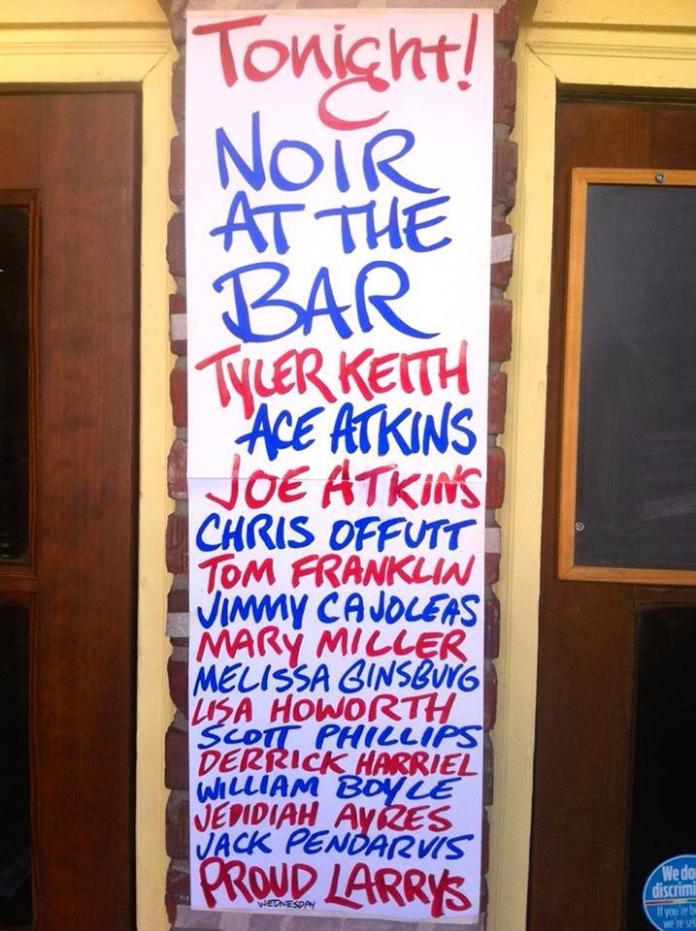 Tonight!
NOIR
AT THE
BAR
TYLER KEITH
ACE ATKINS
JOE ATKINS
CHRIS OFFUTT
TOM FRANKLIN
JIMMY CAJOLEAS
MARY MILLER
MELISSA GINSBURG
LISA HOWORTH
SCOTT PHILLIPS
DERRICK HARRIEL
WILLIAM BOYLE
JEDIDIAH AYRES
JACK PENDARVIS
PROUD LARRYS
WEDNESDAY
We do
discrimi
If you're b
we're sel